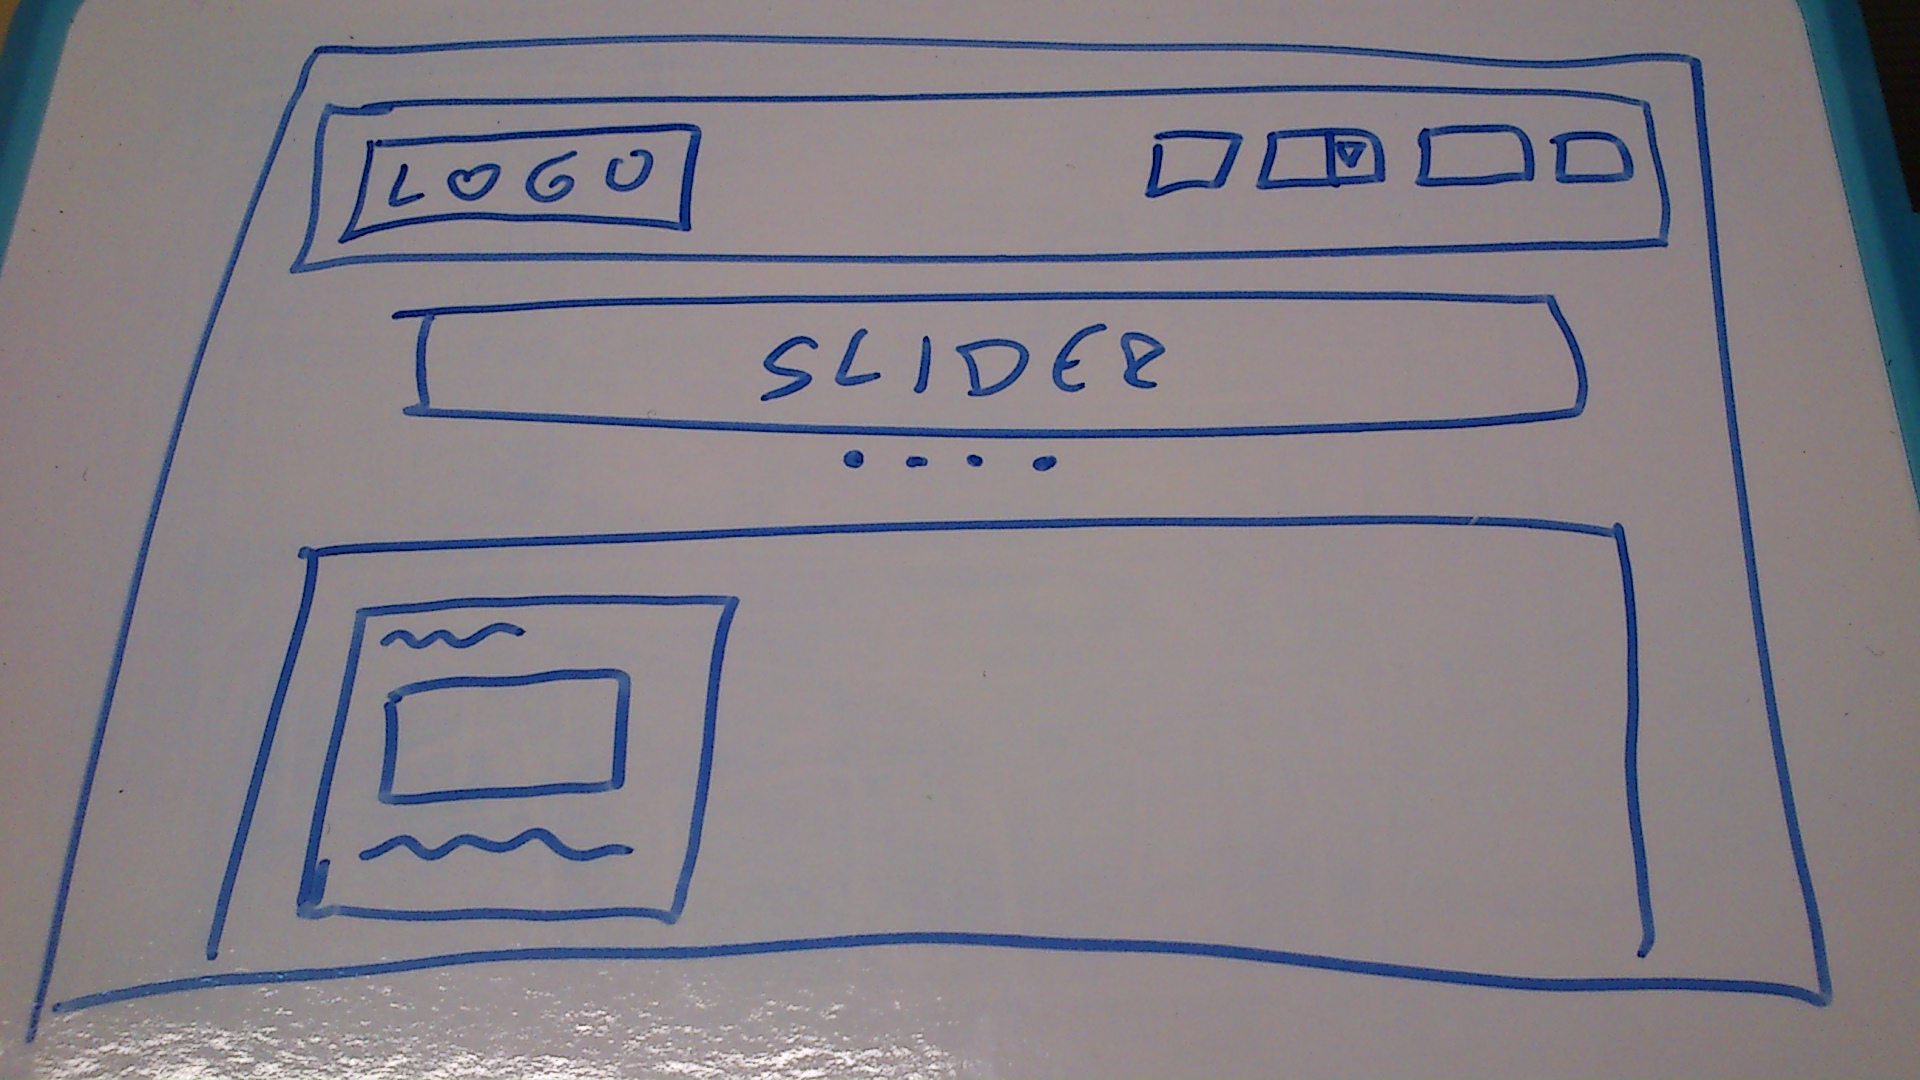 LOGO
SLIDER